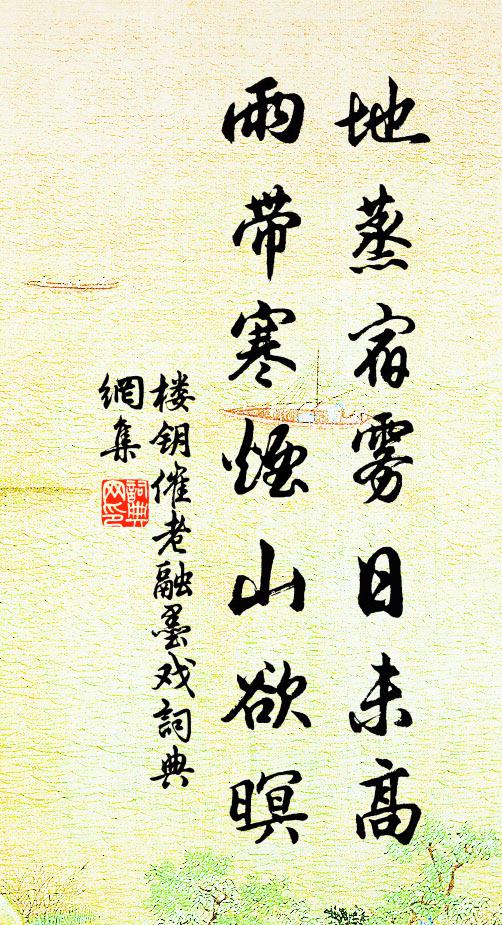 地蒸宿雾日未高
雨带寒煙山欲暝
楼钥催老融墨戏詞典
網集
詞典
网印